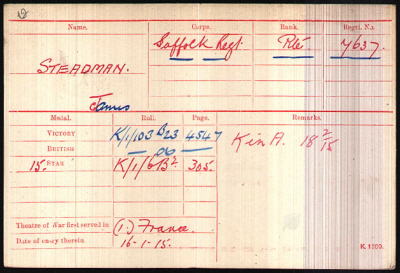 Name. Corps. Rank. Regtl. No.
Suffolk Regt. Pte. 7637.
STEADMAN.
James
Medal. Roll. Page. Remarks.
VICTORY K/1/103 B23 4547
BRITISH — do — Kin A. 18 2/15
15 STAR K/1/6B2 305.
Theatre of War first served in (1.) France.
Date of entry therein 16-1-15.
K. 1380.